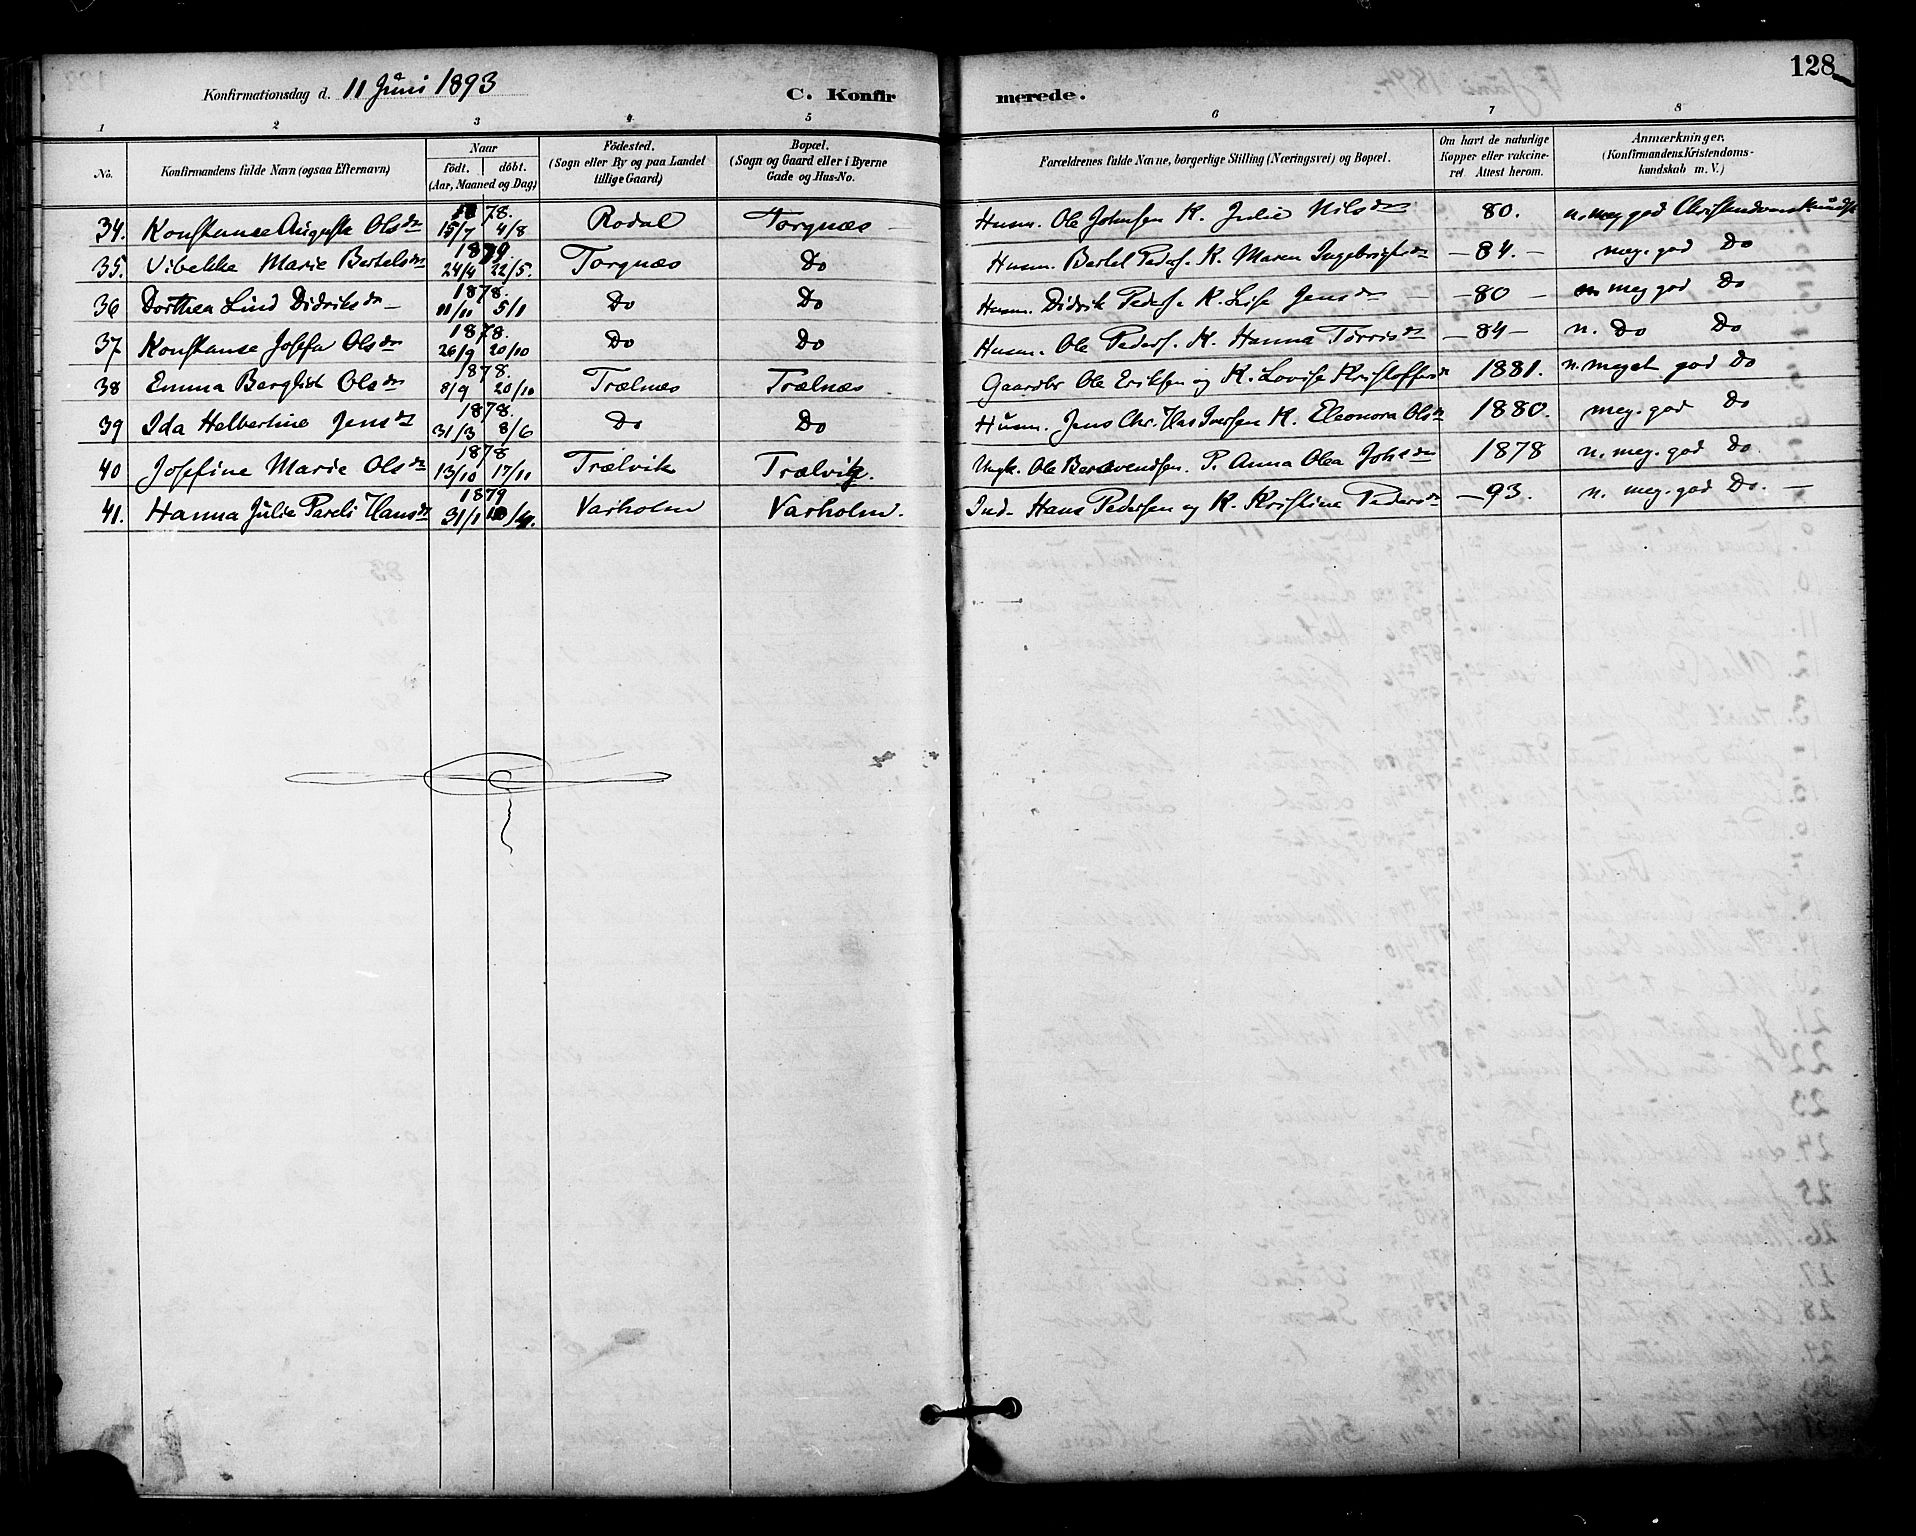 128
Konfirmationsdag d. 11 Juni 1893 C. Konfirmerede.
1 2 3 4 5 6 7 8
No. Konfirmandens fulde Navn (ogsaa Efternavn) Naar født. døbt. (Aar, Maaned og Dag) Fødested. (Sogn eller By og paa Landet tillige Gaard) Bopæl. (Sogn og Gaard eller i Byerne Gade og Hus-No. Forældrenes fulde Navne, borgerlige Stilling (Næringsvei) og Bopæl. Om havt de naturlige Kopper eller vakcineret. Attest herom. Anmærkninger. (Konfirmandens Kristendomskundskab m. V.)
34. Konstanse Auguste Olsdr 1878. 15/7 4/8 Rodal Torgnæs Husm. Ole Johnsen K. Julie Nilsdr 80. n. meg god Christendomskundsk
35. Vibekke Marie Bertelsdr 1879. 24/4 22/5. Torgnæs Do Husm. Bertel Peders. K. Maren Ingebrigtsdr —84.— meg. god Do
36 Dorthea Lind Didriksdr — 1878. 11/11 5/1 Do Do Husm. Didrik Peders. K. Lise Jensdr —80— meg god Do
37 Konstanse Josefa Olsdr 1878. 26/9 20/10 Do Do Husm. Ole Peders. K. Hanna Torrisdr —84— n. Do Do
38 Emma Bergliot Olsdr 1878. 8/9 20/10 Trælnæs Trælnæs Gaardbr Ole Eriksen og K. Lovise Kristoffersdr 1881. n. meget god Do
39 Ida Helbertine Jensdr 1878. 31/3 8/6 Do Do Husm. Jens Chr. Iversen K. Eleonora Olsdr 1880. meg. god Do
40 Josefine Marie Olsdr 1878 13/10 17/11 Trælvik Trælvik. Ungk. Ole P. Anna Olea Johsdr 1878 n. meg. god Do
41. Hanna Julie Pareli Hansdr 1879 31/1 Varholm Varholm. Ind. Hans Pedersen og K. Kristine Pedersdr —93. n. meg. god Do. —